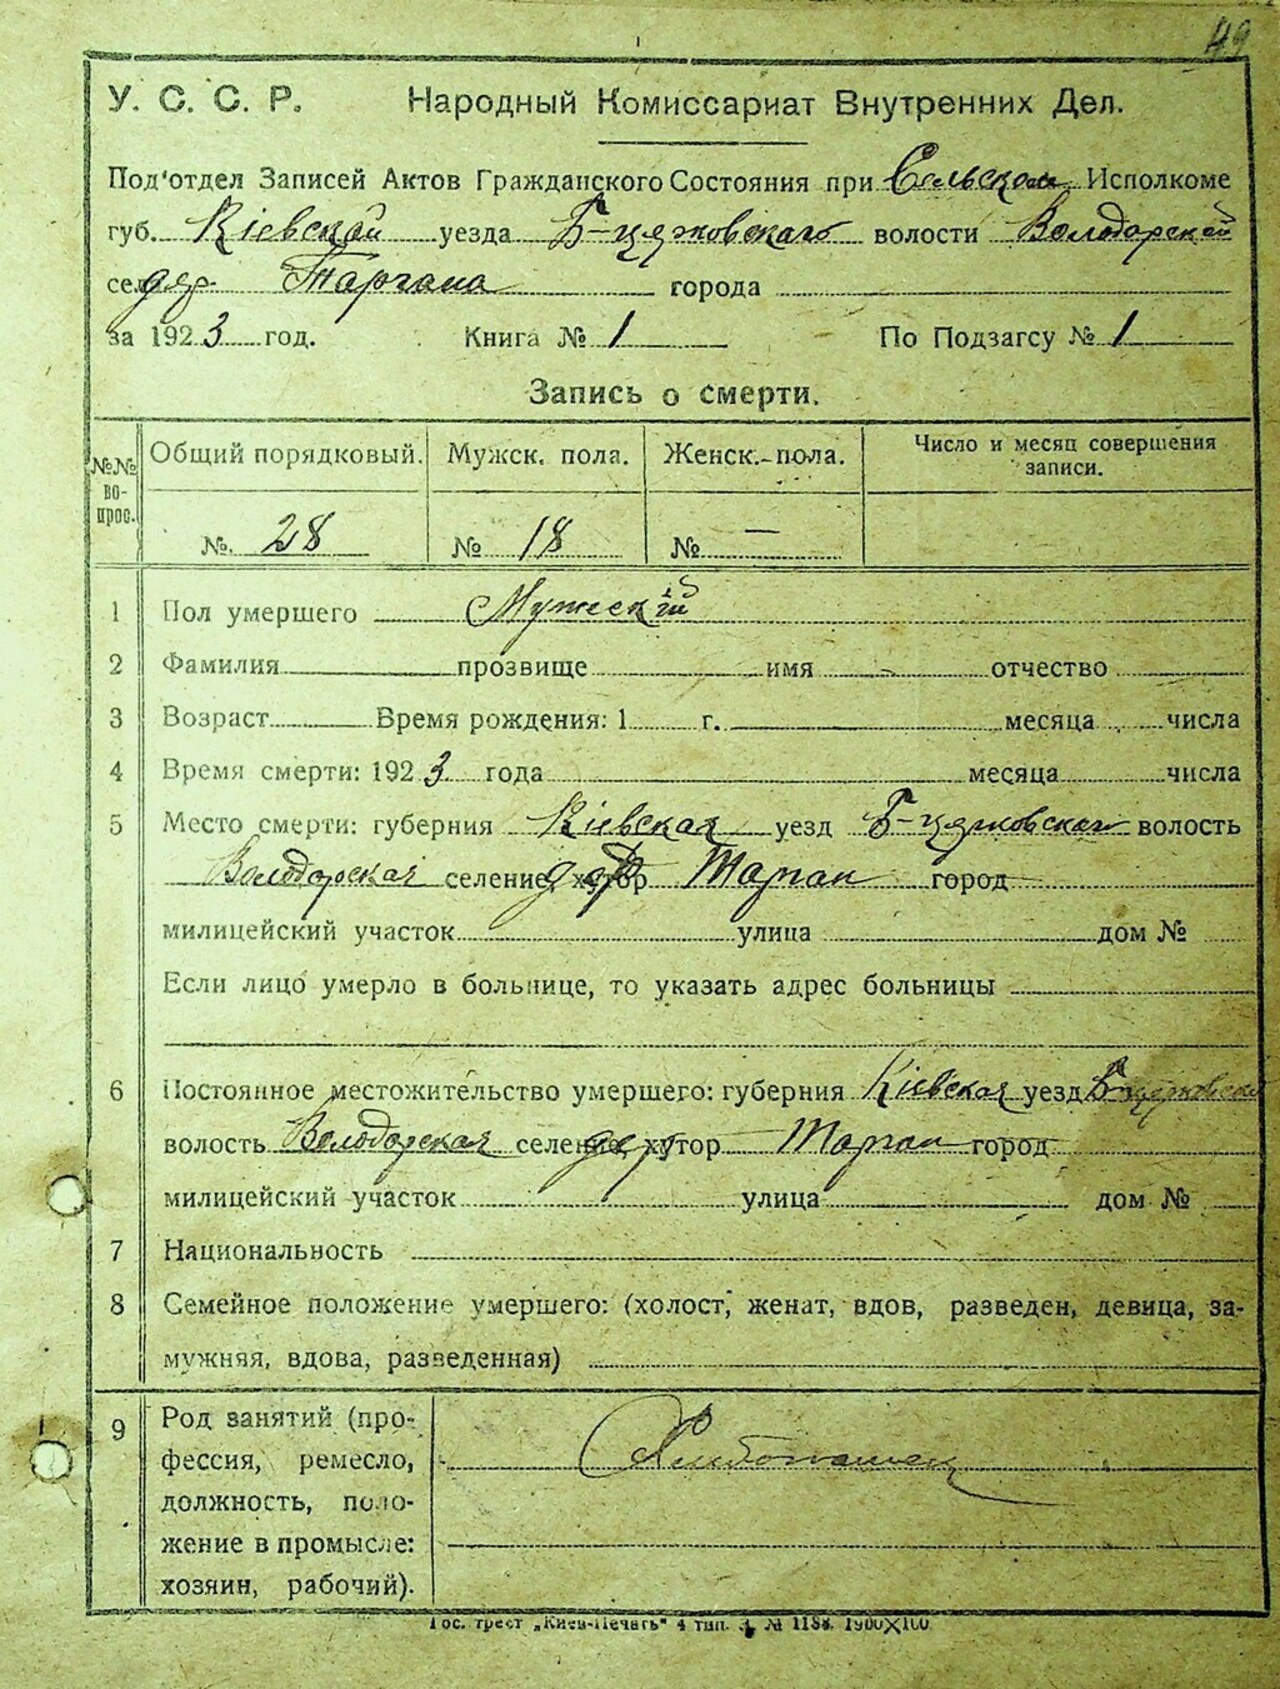 49
У. С. С. Р. Народный Комиссариат Внутренних Дел.
Под'отдел Записей Актов Гражданского Состояния при Сельском Исполкоме
губ. Кіевской уезда Б-церковского волости Володарской
сел дер. Тарган города
за 1923 год. Книга № 1 По Подзагсу № 1
Запись о смерти.
№№ во-прос. Общий порядковый. Мужск. пола. Женск. пола. Число и месяц совершения записи.
№ 28 № 18 № —
1 Пол умершего Мужскій
2 Фамилия прозвище имя отчество
3 Возраст Время рождения: 1 г. месяца числа
4 Время смерти: 1923 года месяца числа
5 Место смерти: губерния Кіевская уезд Б-церковский волость
Володарская селение, хутор дер Тарган город
милицейский участок улица дом №
Если лицо умерло в больнице, то указать адрес больницы
6 Постоянное местожительство умершего: губерния Кіевская уезд Б-церковский
волость Володарская селение, хутор дер Тарган город
милицейский участок улица дом №
7 Национальность
8 Семейное положение умершего: (холост, женат, вдов, разведен, девица, за-
мужняя, вдова, разведенная)
9 Род занятий (про-
фессия, ремесло,
должность, поло-
жение в промысле:
хозяин, рабочий).
Хлибопашец
Гос. трест „Киев-Печать" 4 тип. № 1188. 1900×100